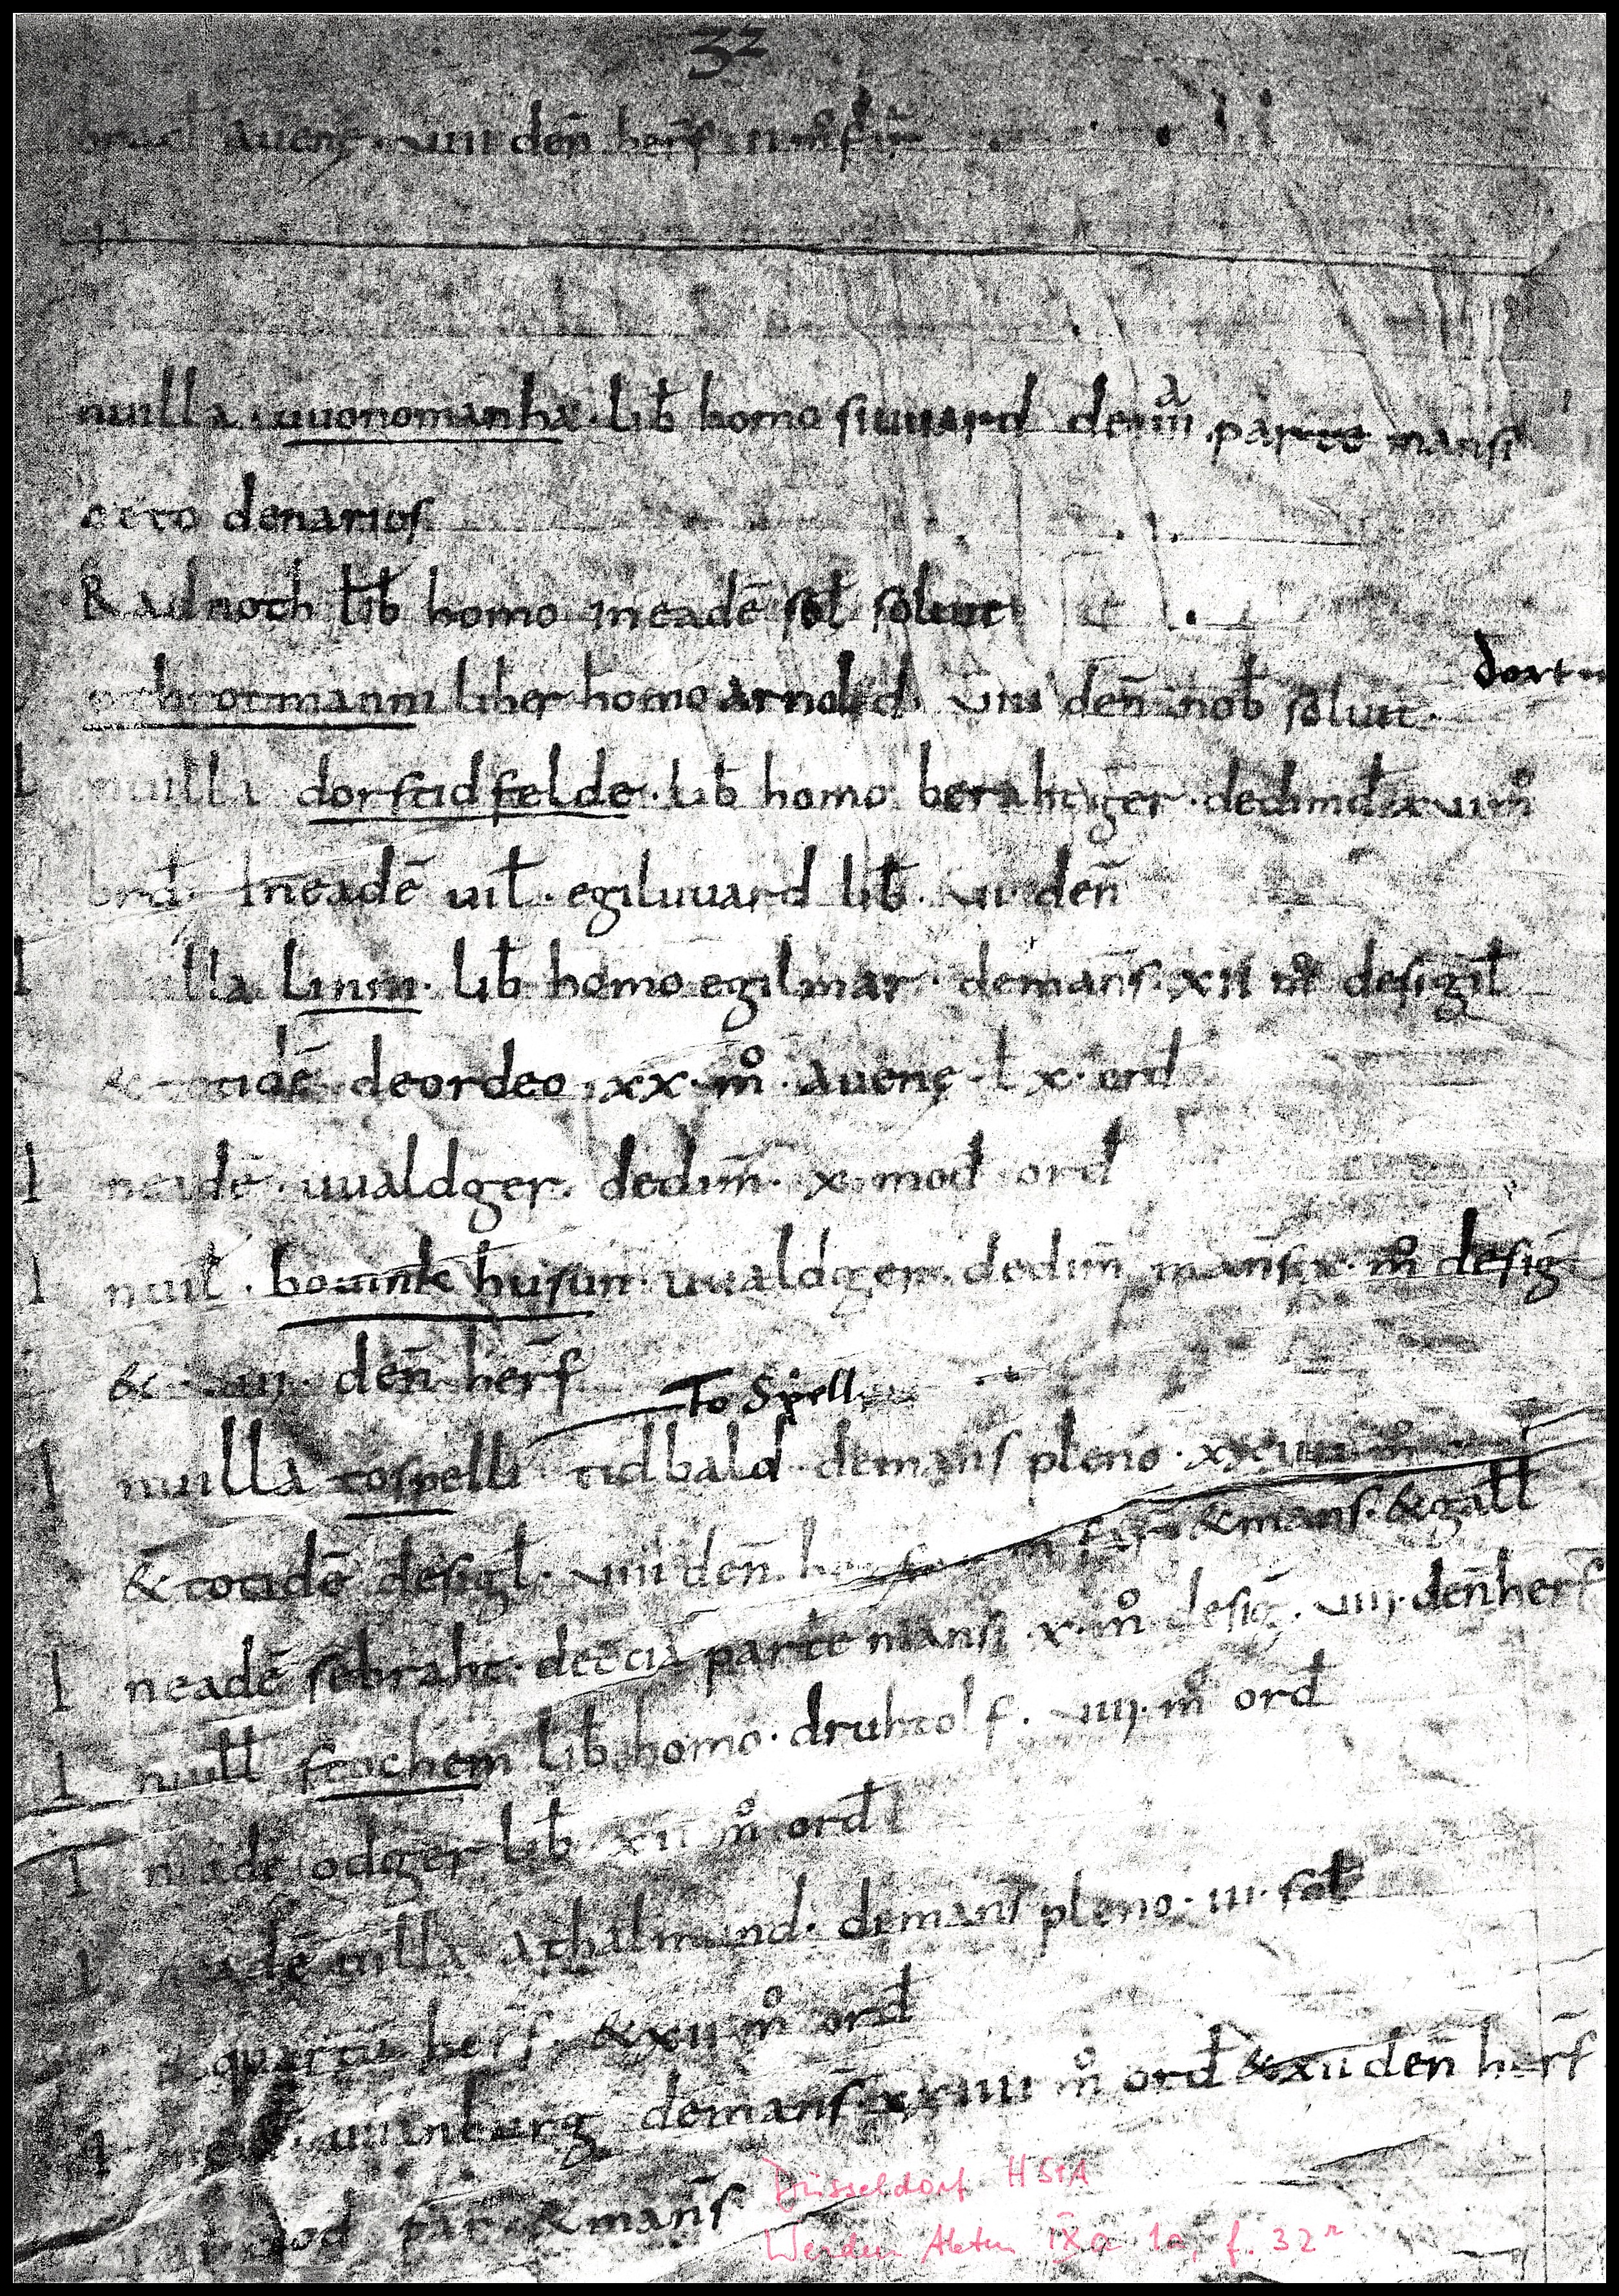 32
auenę. uiii den̄ herſ
nuilla. uuonomanha. lib̄ homo siuuard de iiii a parte mansi
octo denarios
Radnoth lib̄ homo in eadē sol̄ soluit
throtmanni liber homo arnold uiii den̄ nob̄ soluit.
dort
uilla dorstidfelde. lib̄ homo berahtger. dedimd̄
ord̄. In eadē uil̄. egiluuard lib̄. ui. den̄
illa Linni. lib̄ homo egilmar. demans̄. xii m̊ desigil̄
& totidē deordeo. xx. m̊. auenę. lx. ord̄
I neadē. uualdger. dedim̄. x. mod̄ ord̄
I nuil̄. bouinkhusun. uualdger. dedim̄ mans̄. x. m̊ desiḡ
& uiii. den̄ herſ̄
To Spell
I nuilla tospelli tidbald. demans̄ pleno. xxiiii m̊
& totidē desigl̄. uiii den̄. & mans̄. & gall̄
I neadē sebraht. detcia parte mansi. x. m̊ desiḡ. uiii. den̄ herſ̄
I nuill̄ frochem lib̄ homo. druhtolf. uiiii. m̊ ord̄
I neadē odger lib̄. xii m̊ ord̄
I neadē uilla athalmund. demans̄ pleno. iii. sol̄
herſ̄. & xii m̊ ord̄
uuinburg demans̄. xxiiii m̊ ord̄ & xii den̄ herſ̄
mod par. & mans̄
Düsseldorf HStA
Werden Akten IXa 1a, f. 32r